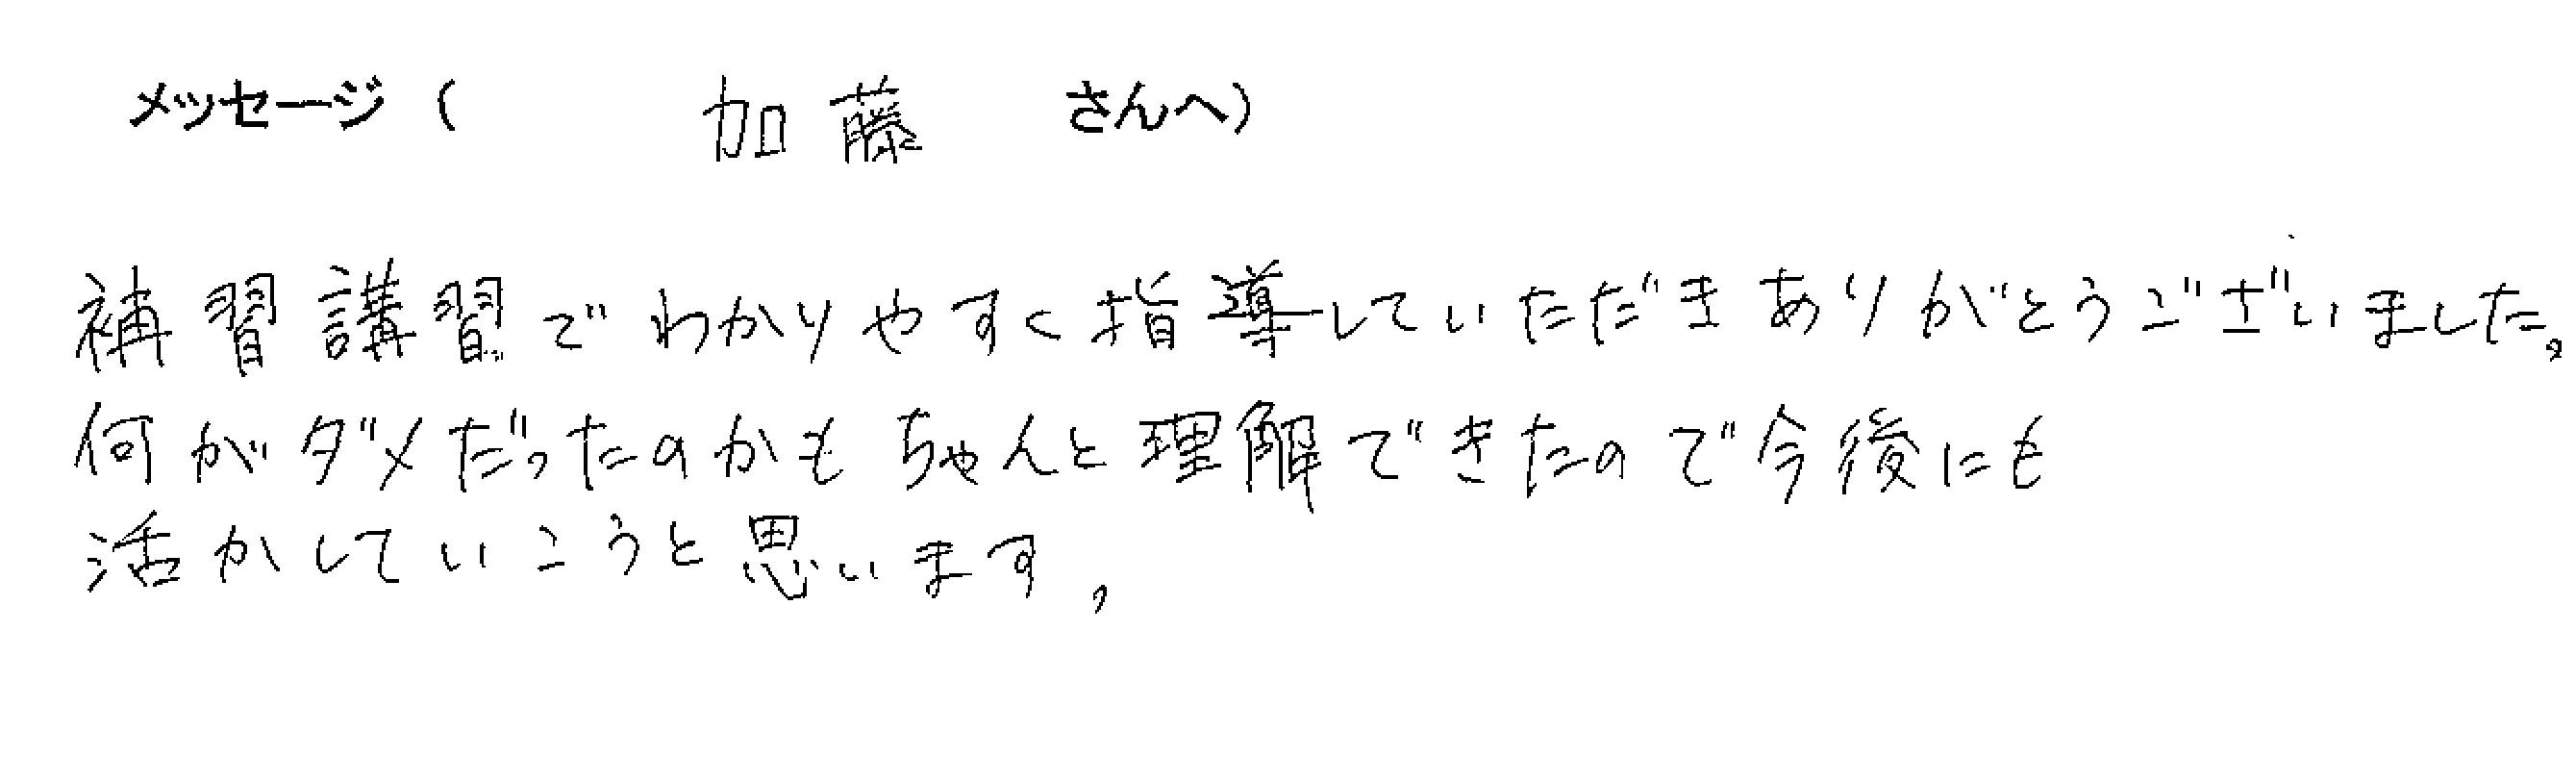 メッセージ( 加藤 さんへ)
補習講習でわかりやすく指導していただきありがとうございました。
何がダメだったのかもちゃんと理解できたので今後にも
活かしていこうと思います。